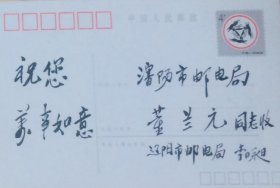 中国人民邮政
祝您
万事如意
沈阳市邮电局
董兰元 同志收
辽阳市邮电局